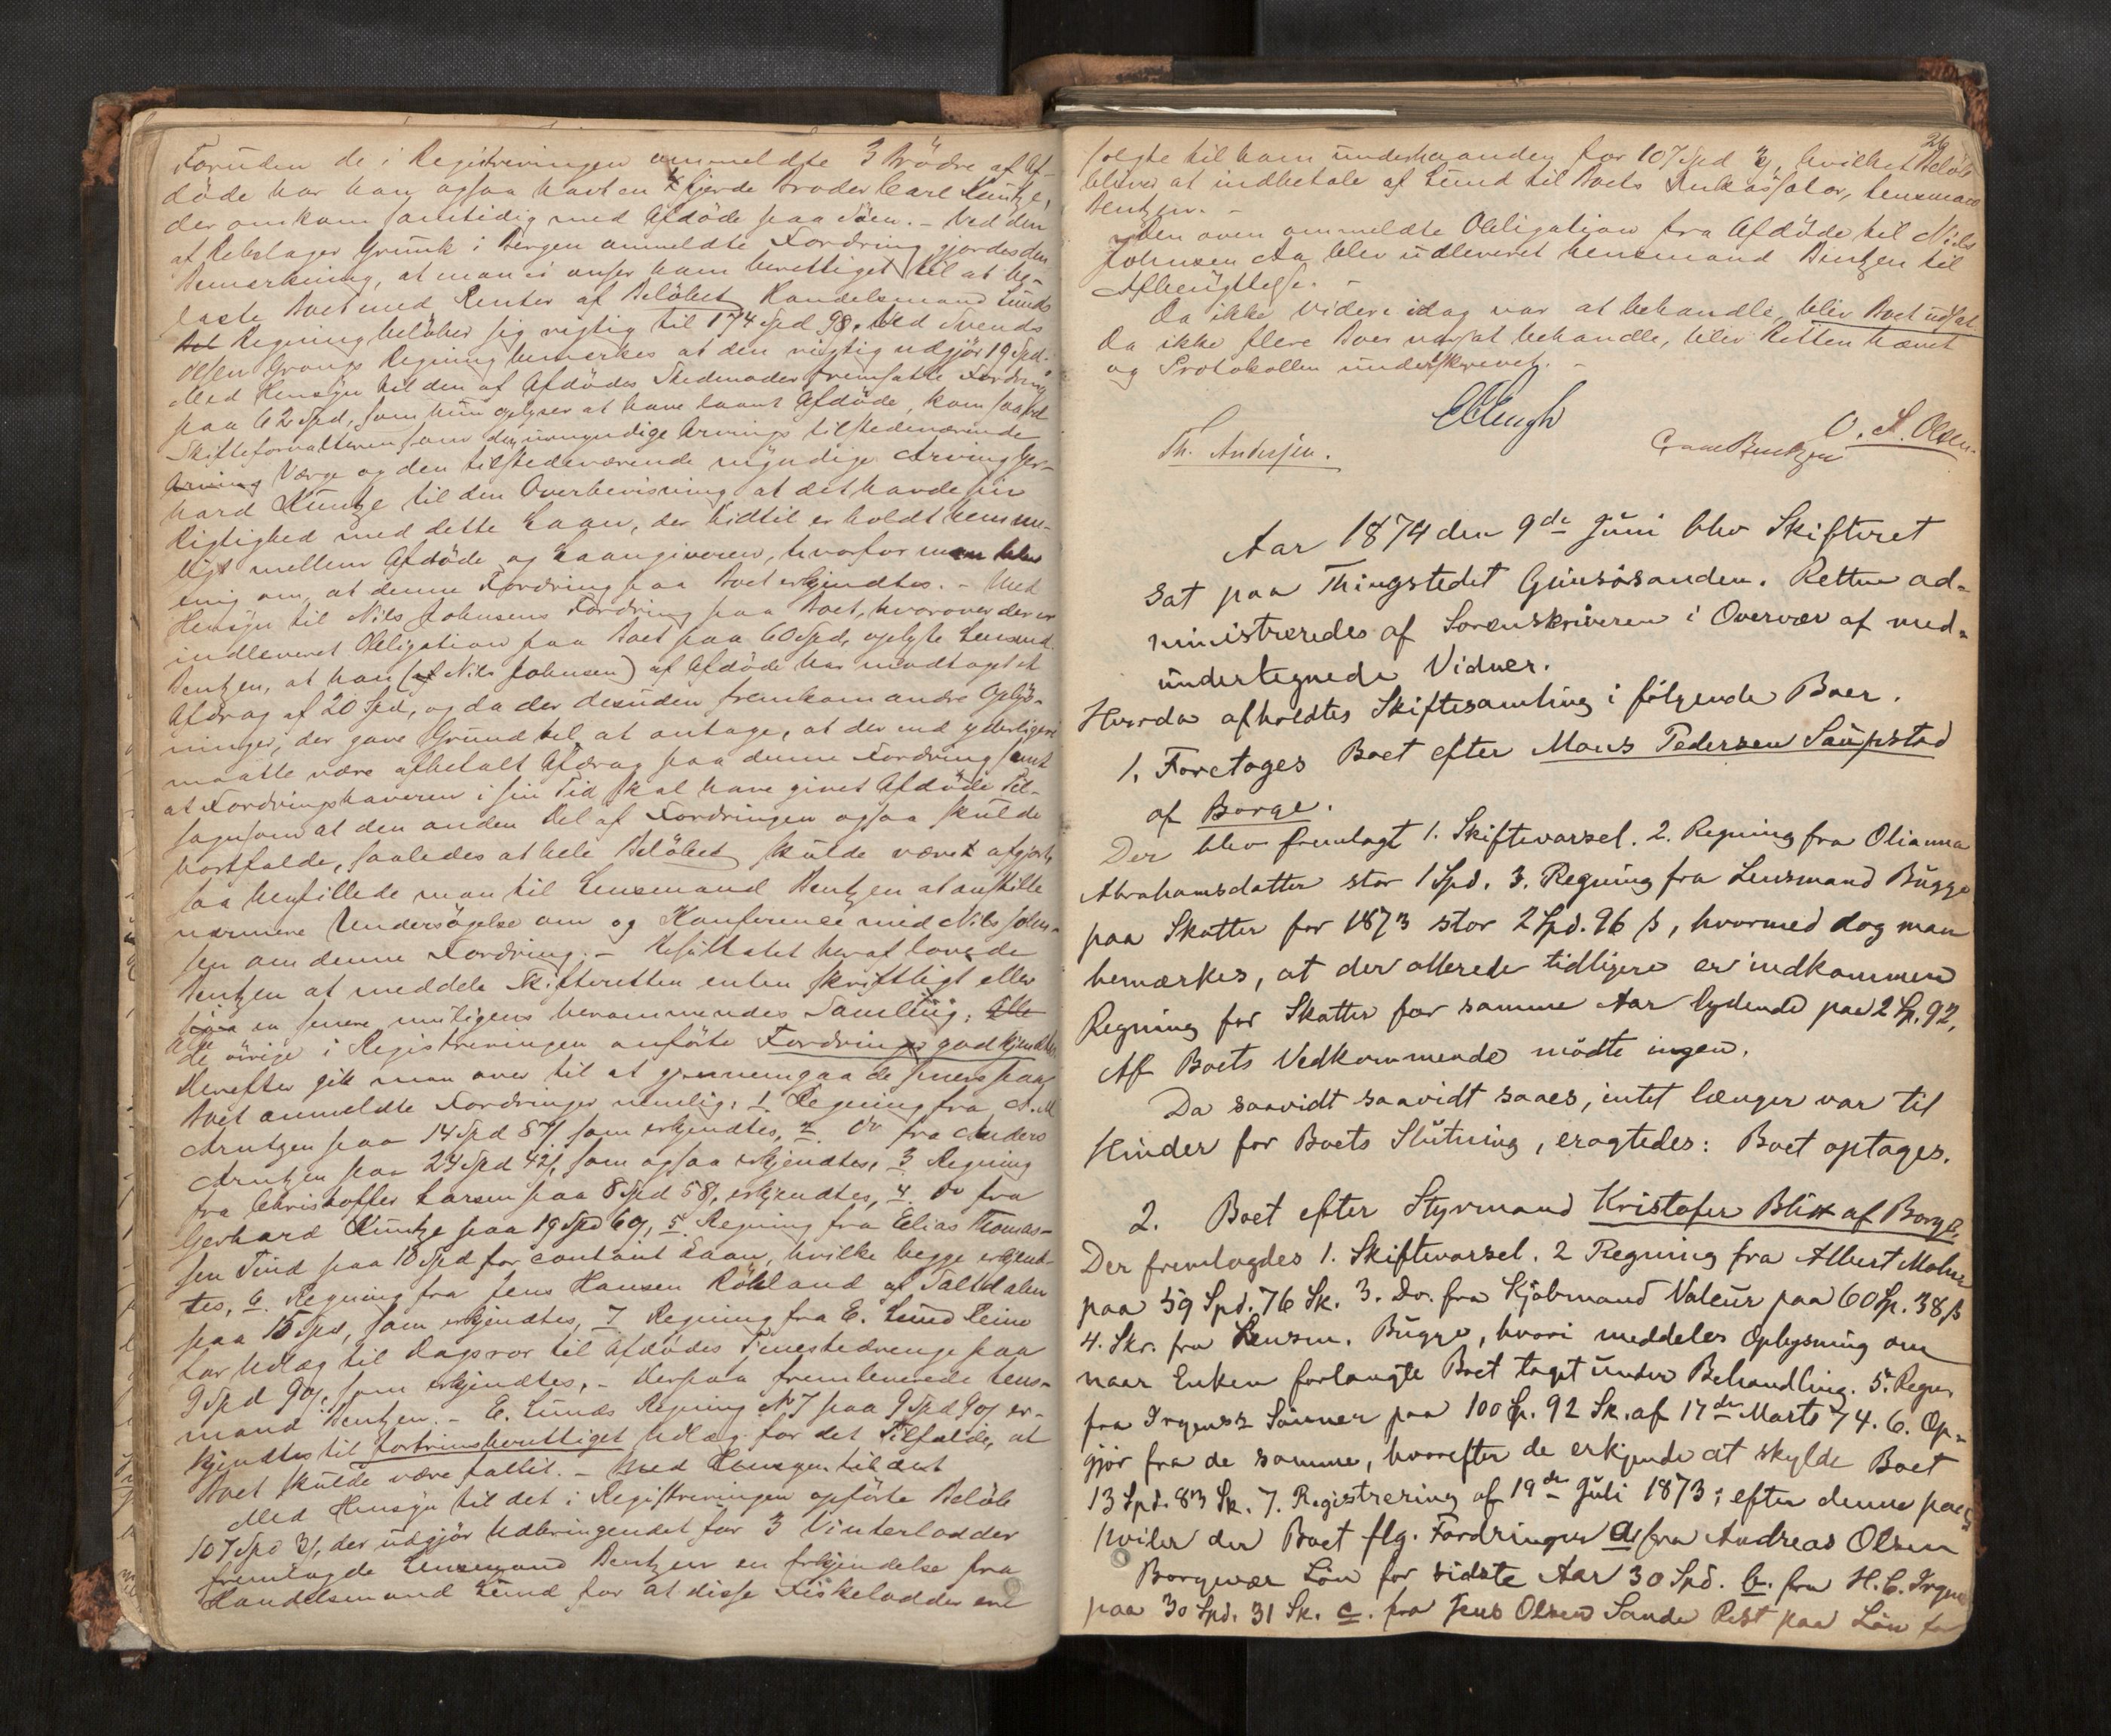 Foruden de i Registreringen anmeldte 3 Brödre af Af-
döde har han ogsaa havt en fjerde Broder Carl Kuntze,
der omkom samtidig med Afdöde paa Söen. - Ved den
af Rebslager Grunk i Bergen anmeldte Fordring gjordes den
Bemærkning, at man ei anser ham berettiget til at be-
laste Boet med Renter af Belöbet Handelsmand Lunds
Regning belöber sig rigtig til 174 Spd 98. Ved Svends
Olsen Grongs Regning bemerkes at den rigtig udgjör 19 Spd.
Med Hensyn til den af Afdödes Stedmoder fremsatte Fordring
paa 62 Spd, som hun oplyser at have laant Afdöde, kom saavel
Skifteforvalteren som den umyndige Arvings tilstedeværende
Arving Værge og den tilstedeværende myndige Arving Ger-
hard Kuntze til den Overbevisning at det havde sin
Rigtighed med dette Laan, der hidtil er holdt hemme-
ligt mellem Afdöde og Laangiveren, hvorfor man blev
enig om, at denne Fordring paa Boet erkjendtes. - Med
Hensyn til Nils Johnsens Fordring paa Boet, hvorover der er
indleveret Obligation paa Boet paa 60 Spd, oplyste Lensmd.
Bentzen, at han (Nils Johnsen) af Afdöde har modtaget et
Afdrag af 20 Spd, og da der desuden fremkom andre Oplys-
ninger, der gave Grund til at antage, at der end yderligere
maatte være afbetalt Afdrag paa denne Fordring samt
at Fordringshaveren i sin Tid skal have givet Afdöde Til-
sagn om at den anden Del af Fordringen ogsaa skulde
bortfalde, saaledes at hele Belöbet skulde været afgjort,
saa henstillede man til Lensmand Bentzen at anstille
nærmere Undersögelse om og Konference med Nils John-
sen om denne Fordring. - Resultatet heraf lovede
Bentzen at meddele Skifteretten enten skriftligt eller
i en senere muligens berammendes Samling. Alle
de övrige i Registreringen anförte Fordringer godkjendtes.
Derefter gik man over til at gjennemgaa de senere paa
Boet anmeldte Fordringer nemlig: 1. Regning fra A. M
Arntzen paa 14 Spd 87 s som erkjendtes, 2. Do fra Anders
Arntzen paa 24 Spd 42 s, som ogsaa erkjendtes, 3 Regning
fra Christoffer Larsen paa 8 Spd 58 s, erkjendtes, 4. Do fra
Gerhard Kuntze paa 19 Spd 60 s, 5. Regning fra Elias Thomas-
sen Tind paa 10 Spd for contant Laan, hvilke begge erkjend-
tes, 6. Regning fra Jens Hansen Rökland af Saltdalen
paa 15 Spd, som erkjendtes, 7 Regning fra E. Lund Reine
for Udlæg til Dagsror til Afdödes Tjenestedrenge paa
9 Spd 90 s, som erkjendtes. - Herpaa fremleverede Lens-
mand Bentzen. - E. Lunds Regning No 7 paa 9 Spd 90 s er-
kjendtes til fortrinsberettiget Udlæg for det Tilfælde, at
Boet skulde være fallit. - Med Hensyn til det
Med Hensyn til det i Registreringen opförte Belöb
107 Spd 3 s, der udgjör Udbringendet for 3 Vinterlodder
fremlagde Lensmand Bentzen en Erkjendelse fra
Handelsmand Lund for at disse Fiskelodder ere
26
solgte til ham underhaanden for 107 Spd 3 s, hvilket Belöb
bliver at indbetale af Lund til Boets Inkassator, Lensmand
Bentzen. -
Den oven ommeldte Obligation fra Afdöde til Nils
Johnsen Aa blev udleveret Lensmand Bentzen til
Afbenyttelse. -
Da ikke videre idag var at behandle, blev Boet udsat
Da ikke flere Boer var at behandle, blev Retten hævet
og Protokollen underskrevet. -
Th. Andersen.
O. S. Olsen.
Aar 1874 den 9de Juni blev Skifteret
sat paa Thingstedet Gimsösanden. Retten ad-
ministreredes af Sorenskriveren i Overvær af med-
undertegnede Vidner.
Hvorda afholdtes Skiftesamling i fölgende Boer.
1. Foretages Boet efter Mons Pedersen Saupstad
af Borge.
Der blev fremlagt 1. Skiftevarsel. 2. Regning fra Olianna
Abrahamsdatter stor 1 Spd. 3. Regning fra Lensmand Bugge
paa Skatter for 1873 stor 2 Spd. 96 s, hvormed dog man
bemærkes, at der allerede tidligere er indkommen
Regning for Skatter for samme Aar lydende paa 2 Sp. 92,
Af Boets Vedkommende mödte ingen.
Da saavidt saavidt saaes, intet længer var til
Hinder for Boets Slutning, eragtedes: Boet optages.
2. Boet efter Styrmand Kristofer Blix af Borge.
Der fremlagdes 1. Skiftevarsel. 2 Regning fra Albert Mohn
paa 59 Spd. 76 Sk. 3. Do. fra Kjöbmand Valeur paa 60 Sp. 38 s
4. Skr. fra Lensm. Bugge, hvori meddeles Oplysning om
naar Enken forlangte Boet taget under Behandling. 5. Regn.
fra Irgens's Sönner paa 100 Sp. 92 Sk. af 17de Marts 74. 6. Op-
gjör fra de samme, hvorefter de erkjende at skylde Boet
13 Spd. 83 Sk. 7. Registrering af 19de Juli 1873; efter denne paa-
hviler der Boet flg. Fordringer a fra Andreas Olsen
Borgevær Lön for sidste Aar 30 Spd. b. fra H. C. Irgens
paa 30 Spd. 31 Sk. c. fra Jens Olsen Sande Rest paa Lön for